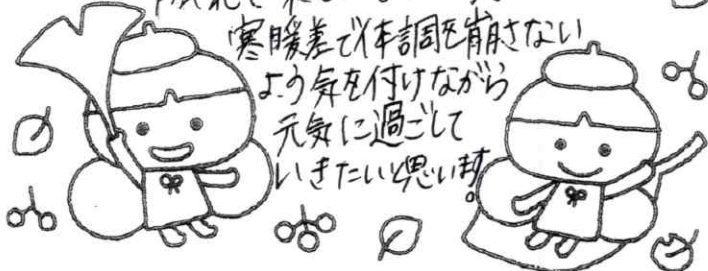 寒暖差で体調を崩さない
よう気を付けながら
元気に過ごして
いきたいと思います。